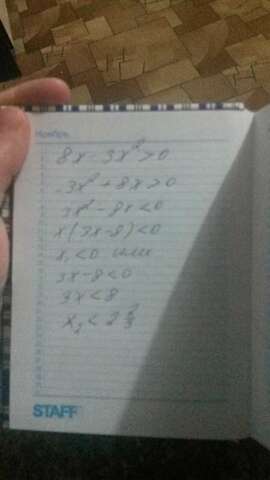 Ноябрь
8x - 3x² > 0
-3x² + 8x > 0
3x² - 8x < 0
x(3x-8) < 0
x₁ < 0 или
3x - 8 < 0
3x < 8
x₂ < 2 2/3
STAFF